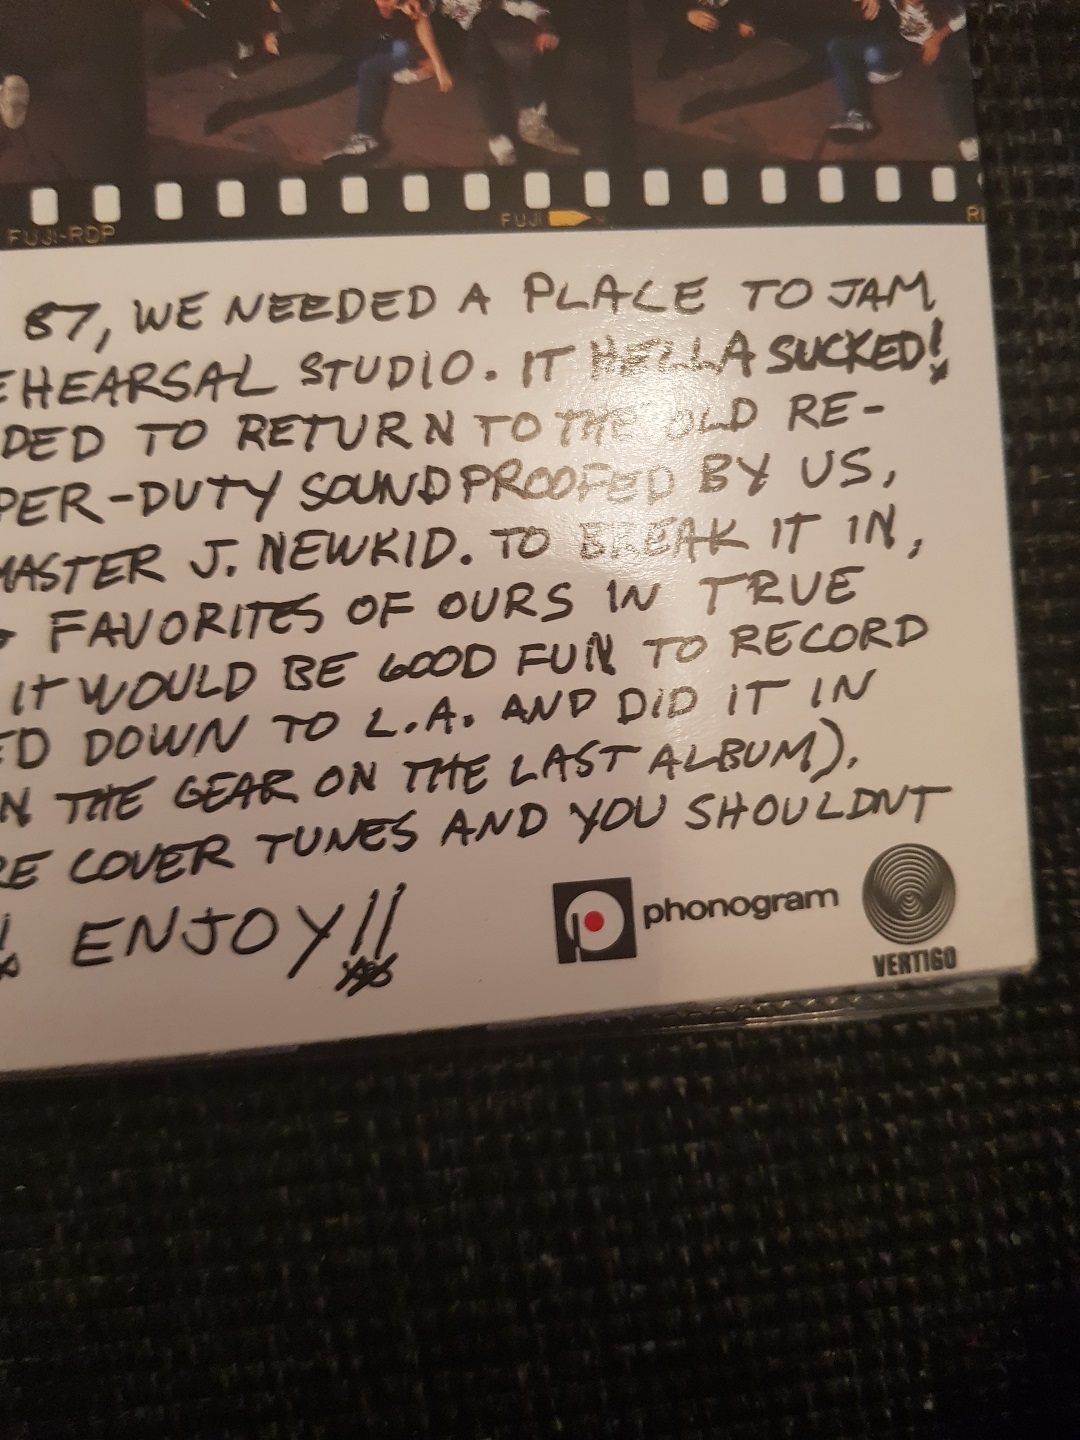 FUJI-RDP FUJI
87, WE NEEDED A PLACE TO JAM
EHEARSAL STUDIO. IT HELLA SUCKED!
DED TO RETURN TO THE OLD RE-
PER-DUTY SOUNDPROOFED BY US,
MASTER J. NEWKID. TO BREAK IT IN,
FAVORITES OF OURS IN TRUE
IT WOULD BE GOOD FUN TO RECORD
ED DOWN TO L.A. AND DID IT IN
N THE GEAR ON THE LAST ALBUM).
RE COVER TUNES AND YOU SHOULDNT
! ENJOY!!
phonogram
VERTIGO